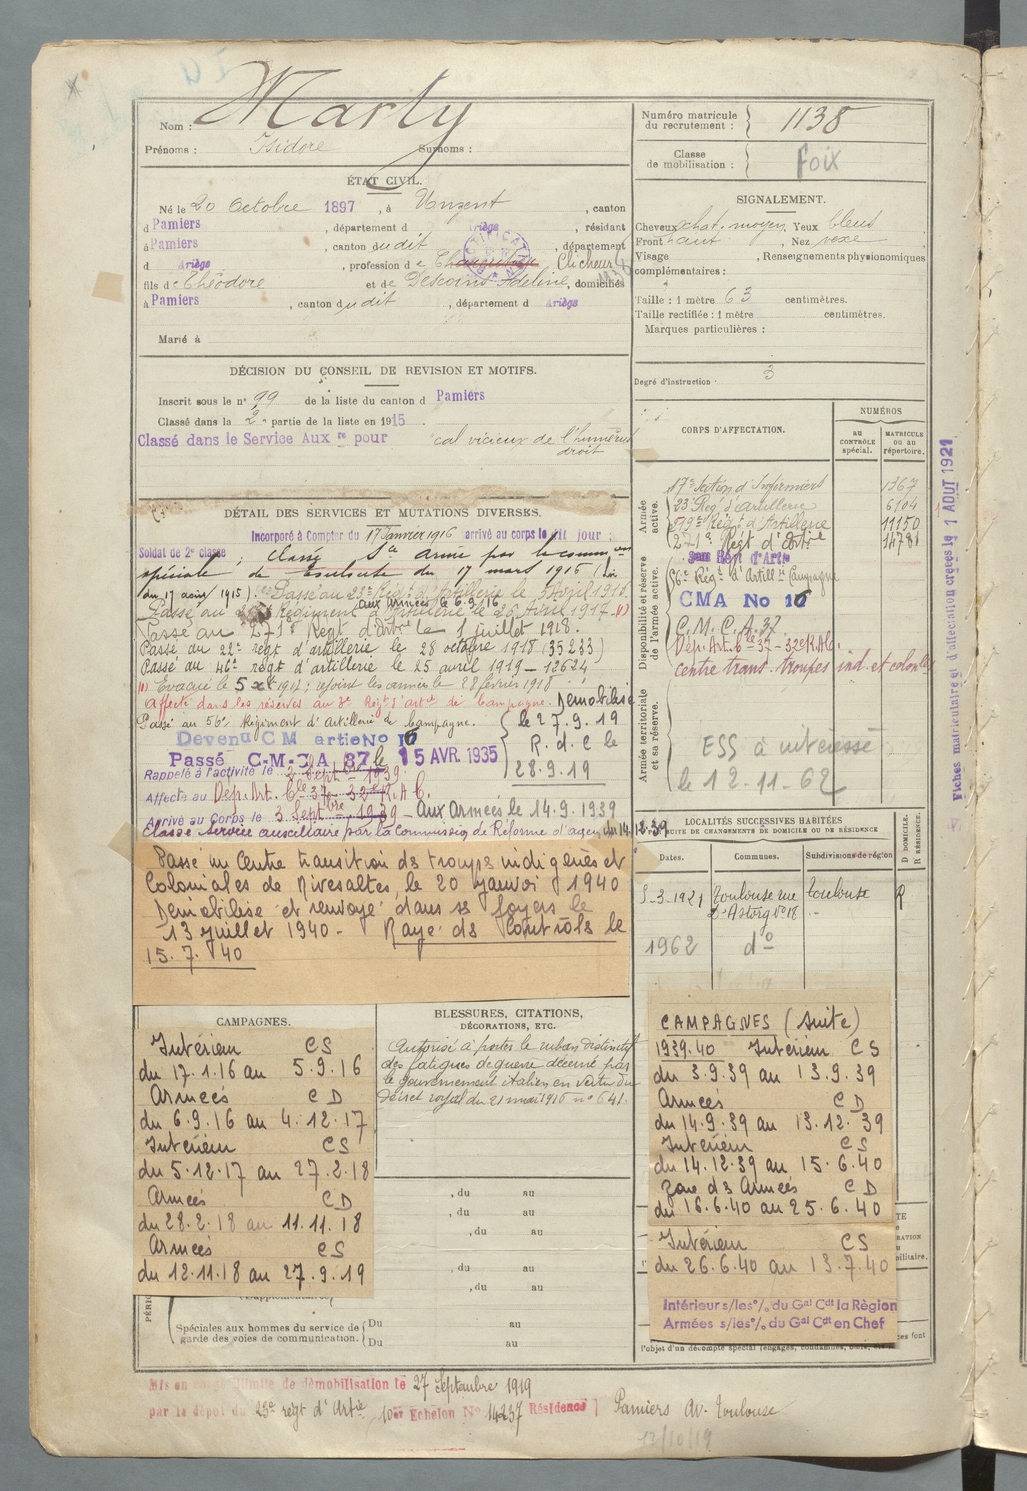 Nom : Marty
Prénoms : Isidore Surnoms :
Numéro matricule du recrutement : 1138
Classe de mobilisation : Foix
ÉTAT CIVIL.
Né le 20 Octobre 1897, à Unzent, canton
d Pamiers, département d Ariège, résidant
à Pamiers, canton dudit, département
d Ariège, profession de Clicheur
fils de Théodore et de Descoins Adeline, domiciliés
à Pamiers, canton dudit, département d Ariège
Marié à
SIGNALEMENT.
Cheveux chat. moyen, Yeux bleus
Front haut, Nez vexe
Visage , Renseignements physionomiques
complémentaires :
Taille : 1 mètre 63 centimètres.
Taille rectifiée : 1 mètre centimètres.
Marques particulières :
Degré d'instruction : 3
DÉCISION DU CONSEIL DE REVISION ET MOTIFS.
Inscrit sous le n° 99 de la liste du canton d Pamiers
Classé dans la 2e partie de la liste en 1915.
Classé dans le Service Auxre pour cal vicieux de l'humérus
droit
DÉTAIL DES SERVICES ET MUTATIONS DIVERSES.
Incorporé à Compter du 17 Janvier 1916 arrivé au corps le dit jour ;
Soldat de 2e classe
classé Sce armé par la common
spéciale de Toulouse du 17 mars 1916 (Loi
du 17 août 1915). Passé au 23e Régt d'Artillerie le 3 Avril 1916.
aux armées le 6.9.16
Passé au Régiment d'Artillerie le 26 Avril 1917. (1)
Passé au 271e Régt d'Artrie le 1 juillet 1918.
Passé au 22e régt d'artillerie le 28 octobre 1918 (35233)
Passé au 46e régt d'artillerie le 25 avril 1919 - 12624
(1) Évacué le 5 xbre 1917 ; rejoint les armées le 28 février 1918
Affecté dans les réserves au 3e Régt d'artie de Campagne. Démobilisé
Passé au 56e Régiment d'Artillerie de Campagne. le 27.9.19
Devenu CM artie No 16
R.d.C le
28.9.19
Passé C.M.C.A 37 le 15 AVR. 1935
Rappelé à l'activité le 2 Septbre 1939.
Affecté au Dép. Art. Cle 37 - 32e R.A.C.
Arrivé au Corps le 3 Septbre 1939 - Aux Armées le 14.9.1939
Classé Service auxiliaire par la Commission de Réforme d'Agen du 14.12.39
Passé au Centre transition ds troupes indigènes et
Coloniales de Rivesaltes, le 20 Janvier 1940
Démobilisé et renvoyé dans ss foyers le
13 juillet 1940 - Rayé ds Contrôls le
15.7.40
CORPS D'AFFECTATION.
NUMÉROS
AU CONTRÔLE spécial.
MATRICULE OU AU répertoire.
Armée active.
17e Section d'Infirmiers 1367
23e Régt d'artillerie 6104
Régt d'Artillerie 11150
271e Régt d'Artrie 14781
Disponibilité et réserve de l'armée active.
56e Régt d'Artillie Campagne
CMA No 16
C.M.C.A. 37
Dép. Art. Cle 37 - 32e R.A.C.
centre trans. troupes ind. et coloniales
Armée territoriale et sa réserve.
ESS à intéressé
le 12.11.62
Fiches matriculaire et d'affectation créées le 1 AOUT 1921
LOCALITÉS SUCCESSIVES HABITÉES
PAR SUITE DE CHANGEMENTS DE DOMICILE OU DE RÉSIDENCE
Dates. Communes. Subdivisions de région D DOMICILE. R RÉSIDENCE.
5-3-1921 Toulouse rue d'Astorg N°18 Toulouse R
1962 d°
CAMPAGNES.
Intérieur CS
du 17.1.16 au 5.9.16
Armées CD
du 6.9.16 au 4.12.17
Intérieur CS
du 5.12.17 au 27.2.18
Armées CD
du 28.2.18 au 11.11.18
Armées CS
du 12.11.18 au 27.9.19
BLESSURES, CITATIONS,
DÉCORATIONS, ETC.
Autorisé à porter le ruban distinctif
des fatigues de guerre décerné par
le gouvernement italien en vertu du
décret royal du 21 mai 1916 n° 641.
, du au
, du au
, du au
, du au
, du au
Spéciales aux hommes du service de garde des voies de communication.
Du au
Du au
CAMPAGNES (suite)
1939.40 Intérieur CS
du 3.9.39 au 13.9.39
Armées CD
du 14.9.39 au 13.12.39
Intérieur CS
du 14.12.39 au 15.6.40
Zone ds Armées CD
du 16.6.40 au 25.6.40
Intérieur CS
du 26.6.40 au 13.7.40
Intérieur s/les°/. du Gal Cdt la Région
Armées s/les°/. du Gal Cdt en Chef
l'objet d'un décompte spécial (engagés, condamnés,
Mis en congé illimité de démobilisation le 27 Septembre 1919
par le dépôt du 23e régt d'Artrie, 10er Echelon No 14237 Résidence Pamiers Av. Toulouse
12/10/19